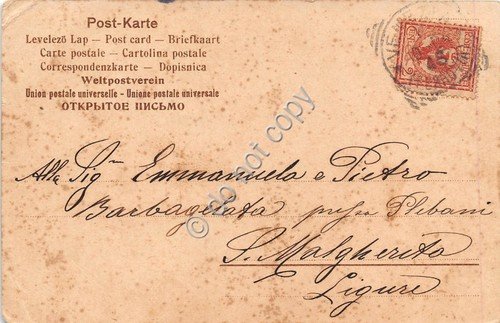 Post-Karte
Levelező Lap — Post card — Briefkaart
Carte postale — Cartolina postale
Correspondenzkarte — Dopisnica
Weltpostverein
Union postale universelle - Unione postale universale
ОТКРЫТОЕ ПИСЬМО
Alla Sig.ⁿᵃ Emmanuela e Pietro
Barbagelata presso Plebani
S. Malgherita
Ligure
do not copy